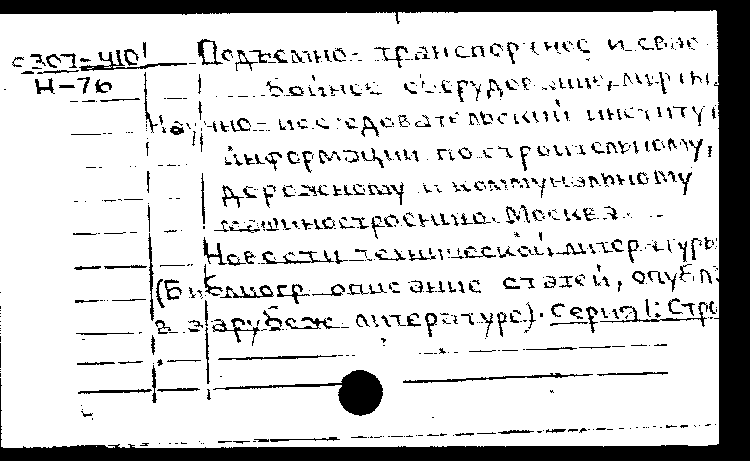 с307-410 Подъемно-транспортное и свае-
Н-76 бойное оборудование, лифты.
Научно-исследовательский институт
информации по строительному,
дорожному и коммунальному
машиностроению. Москва.
Новости технической литературы
(Библиогр описание статей, опубл
в зарубеж литературе). Серия 1: Стро